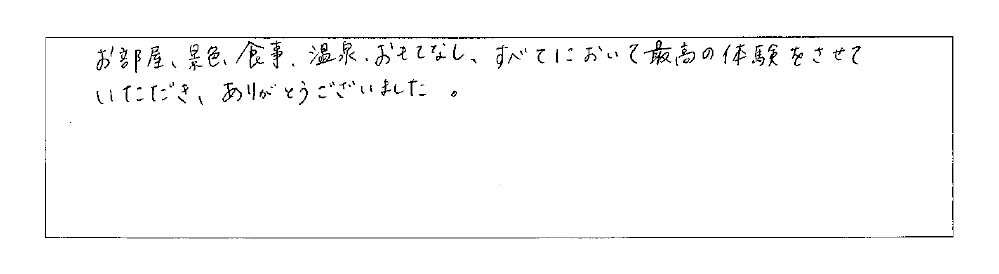 お部屋、景色、食事、温泉、おもてなし、すべてにおいて最高の体験をさせて
いただき、ありがとうございました。